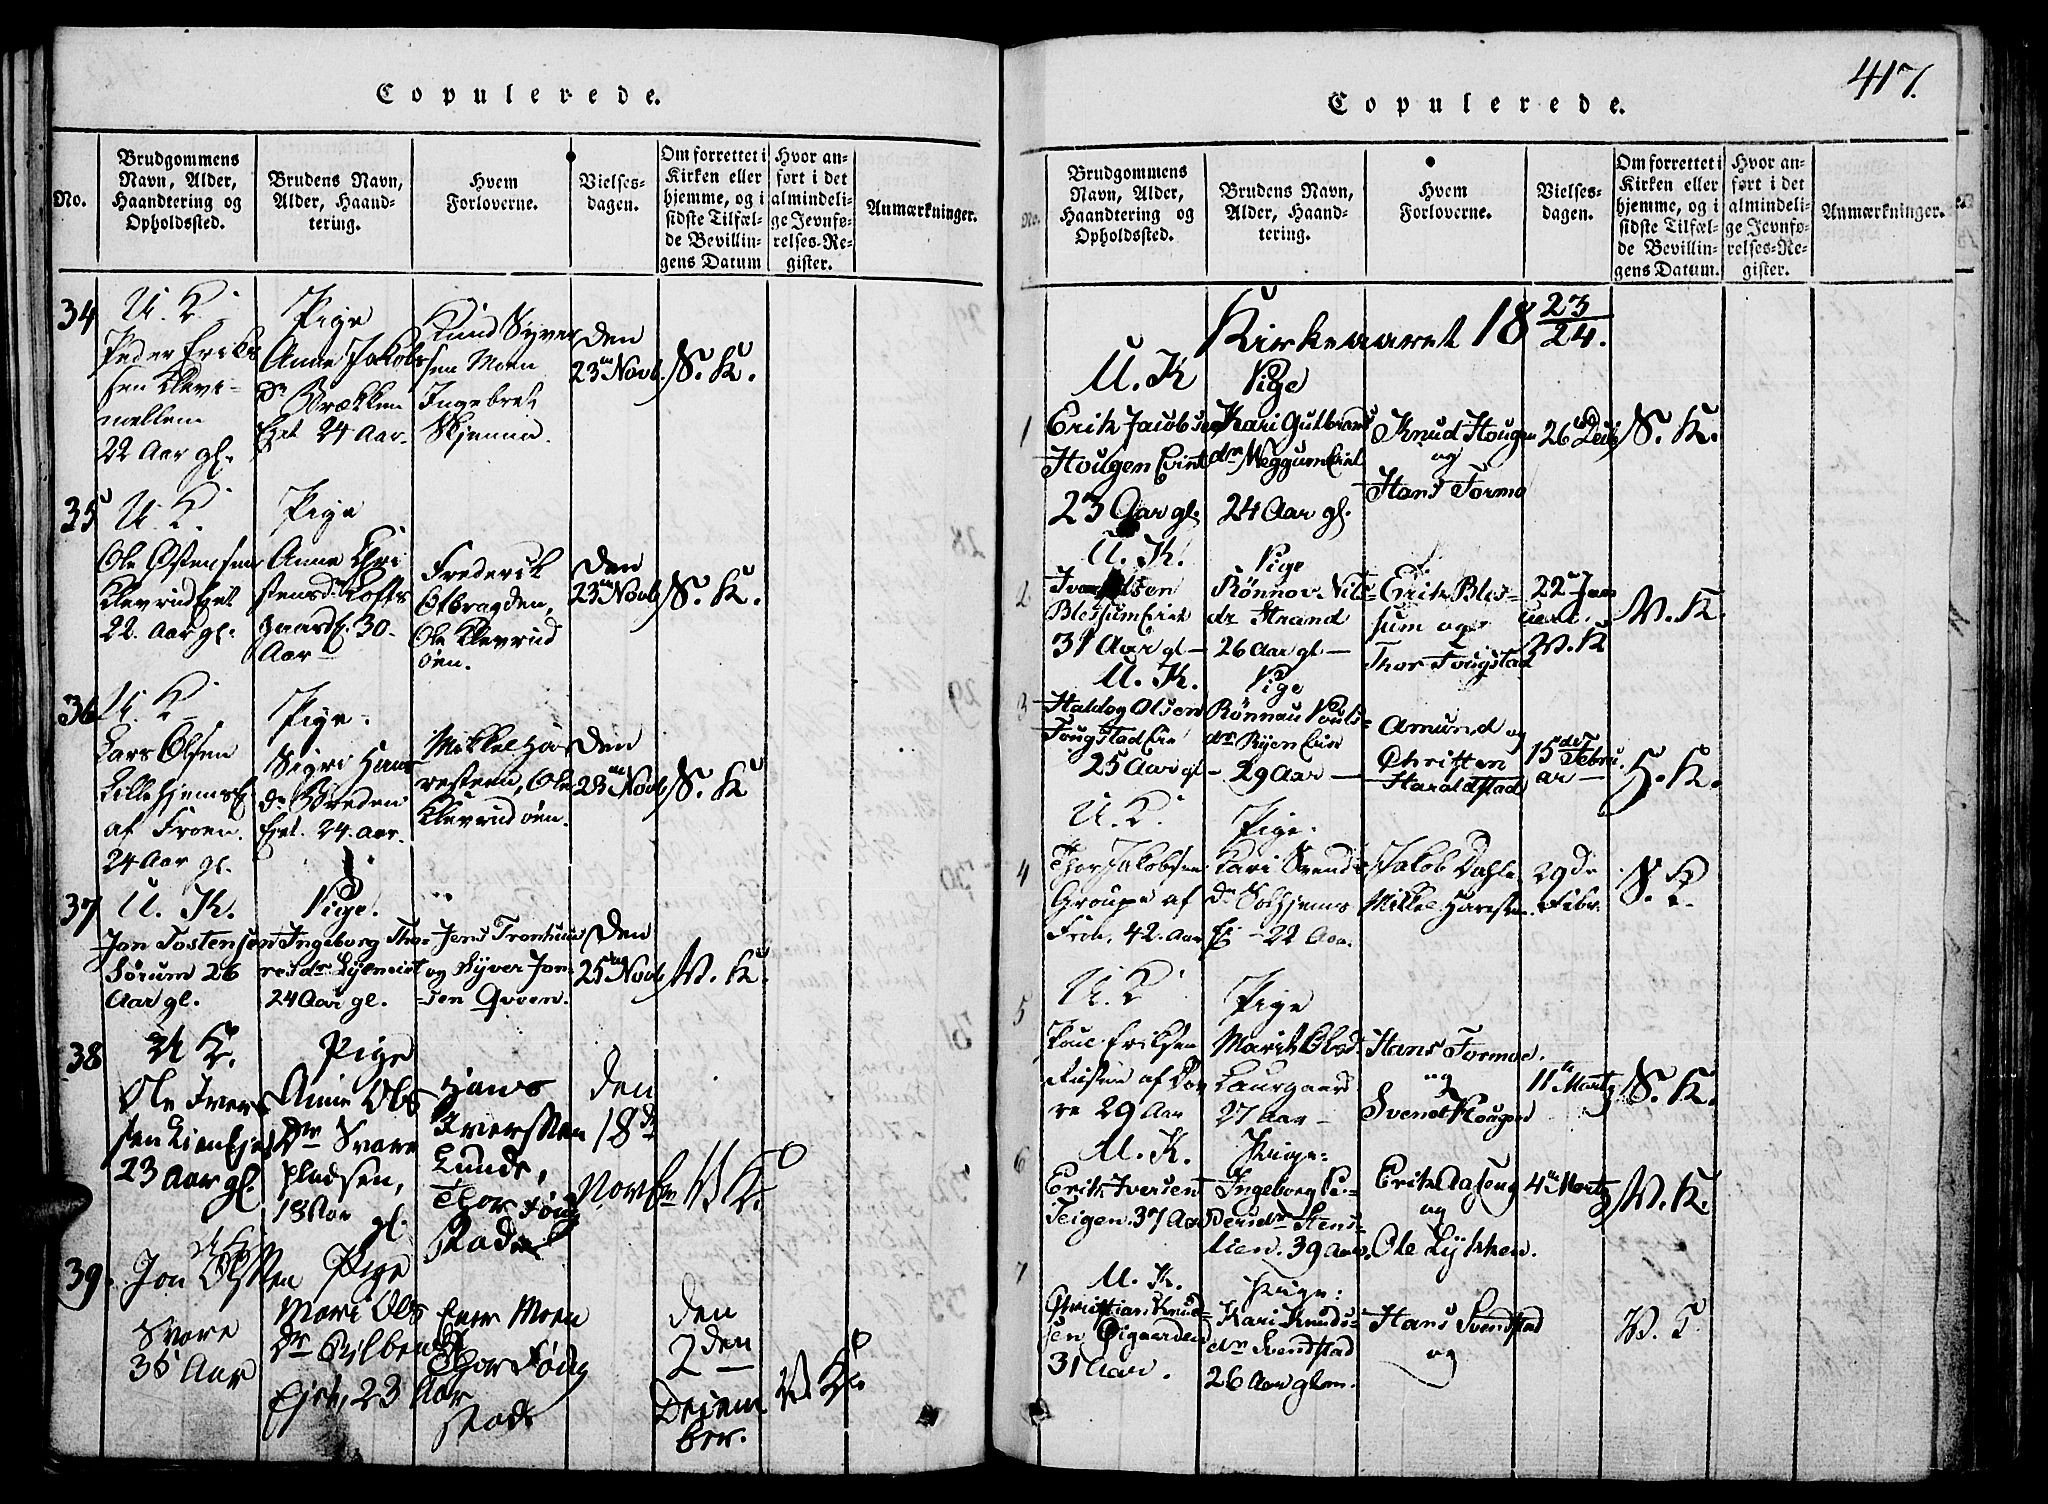 Copulerede.
No.
Brudgommens
Navn, Alder,
Haandtering og
Opholdssted.
Brudens Navn,
Alder, Haand-
tering.
Hvem
Forloverne.
Vielses-
dagen.
Om forrettet i
Kirken eller
hjemme, og i
sidste Tilfæl-
de Bevillin-
gens Datum
Hvor an-
ført i det
almindeli-
ge Jevnfø-
relses-Re-
gister.
Anmærkninger.
34
U. K.
Peder Erik-
sen Klevi-
mellem
22 Aar gl.
Pige
Anne Jakobs
Dr Brækken
Ejet 24 Aar.
Knud Syver
sen Moen
Ingebret
Skjenna.
Den
23 Novb.
S. K.
35
U. K.
Ole Østensen
Klevrud Ejet
22. Aar gl.
Pige
Anne Chri
stensdr Lofts
gaard E. 30
Aar
Frederik
Otbragden,
Ole Klevrud
öen.
Den
23 Novb
S. K.
36
U. K.
Lars Olsen
Lillehjems E
af Froen.
24 Aar gl.
Pige.
Sigri Hans
dr Breden
Ejet. 24. Aar.
Mikkel Haa
resteen, Ole
Klevrud öen.
Den
23 Novb
S. K
37
U. K.
Jon Tostensen
Sörum 26
Aar gl.
Pige.
Ingeborg Tho-
resdr Lyleneiet
24 Aar gl.
Jens Tronhuus
og Syver Jon-
sen Qveen.
Den
25 Novb
V. K.
38
U K.
Ole Iver
sen Lien Ejet
23 Aar gl.
Pige
Anne Ols
Dr Svare
pladsen,
18 Aar gl.
Hans
Iverssen
Lunde,
Thor Töng
Stade
den
18de
Novbr
V K.
39.
U K
Jon Olssen
Svare
35 Aar
Pige
Mari Ols
Dr
Ejet, 23 Aar
Moen
Thor Töng
Stade
den
2den
Decem
ber.
V K.
417.
Copulerede.
No.
Brudgommens
Navn, Alder,
Haandtering og
Opholdssted.
Brudens Navn,
Alder, Haand-
tering.
Hvem
Forloverne.
Vielses-
dagen.
Om forrettet i
Kirken eller
hjemme, og i
sidste Tilfæl-
de Bevillin-
gens Datum.
Hvor an-
ført i det
almindeli-
ge Jevnfø-
relses-Re-
gister.
Anmærkninger.
Kirkeaaret 18 23/24.
1
U. K
Erik Jacobsen
Hougen Eiet
23 Aar gl.
Pige
Kari Gulbrands
dr Meggum Eiet
24 Aar gl.
Knud Hougen
og
Hans Formo
26 Decb
S. K.
2
U. K.
Iver Olsen
Blessum Eiet
31 Aar gl
Pige
Rönnov Nils-
dr Strand
26 Aar gl
Erik Bles-
sum og
Thor Tougstad
22 Janu
uari.
V. K
V. K.
3
U. K.
Haldog Olsen
Tougstad Eie
25 Aar gl
Pige
Rönnau Pouls-
dr Ryen Eiet
29 Aar
Amund og
Christen
Haraldstad
15de Febru
ar
H. K.
4
U. K.
Thor Jakobsen
Groupe af
Fron, 42. Aar
Pige.
Kari Svends
dr Solhjems
E 22 Aar.
Jakob Dahle
Mikkel Haresten.
29de
Febr.
S. K.
5
U. K
Poul Eriksen
af Dov
re 29 Aar
Pige
Marit Olsd.
Laurgaard
27 Aar
Hans Formoe.
og
Svend Hougen
11te Martz
S. K.
6
U. K.
Erik Iversen
Teigen. 37 Aar
Piige:
Ingeborg Pe-
dersdr Stens-
lien. 39 Aar.
Erik Daseng
og
Ole Lykken.
4de Martz
V. K.
7
U. K.
Christian Knud-
sen Öigaarden
31 Aar.
Piige:
Kari Knuds-
dr Svendstad
26 Aar glm.
Hans Svendstad
og
V. K